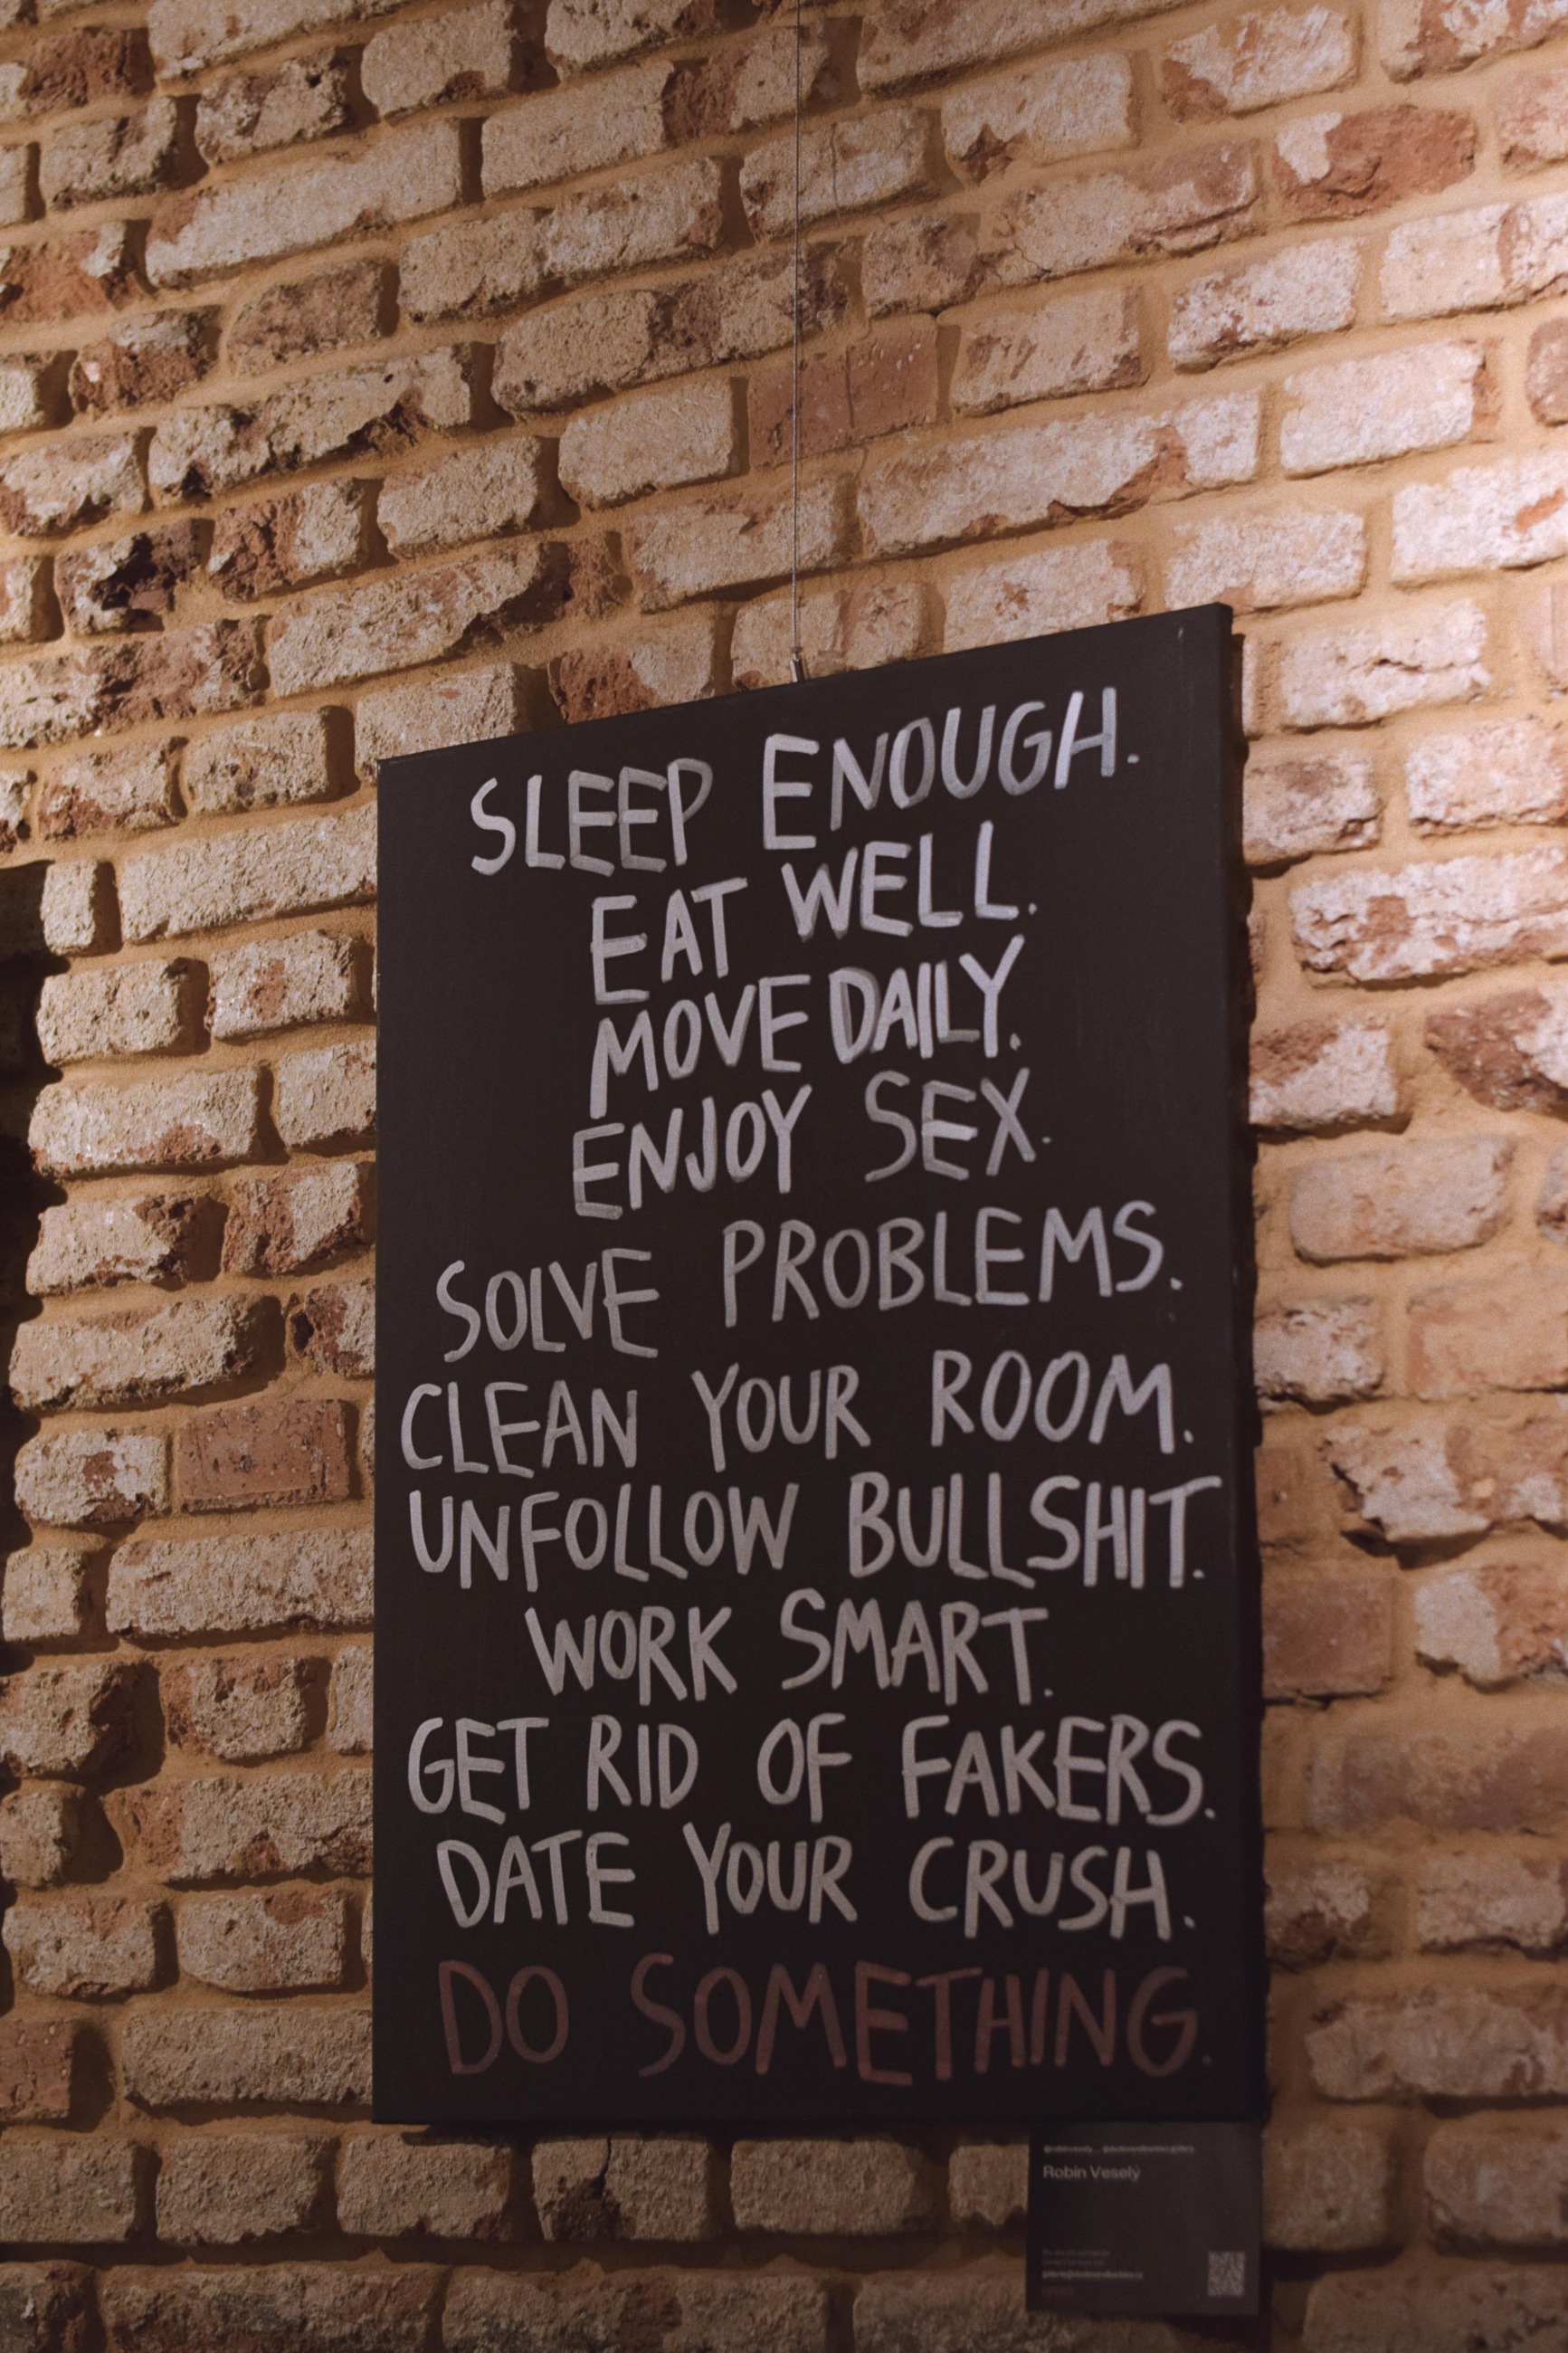 SLEEP ENOUGH.
EAT WELL.
MOVE DAILY.
ENJOY SEX.
SOLVE PROBLEMS.
CLEAN YOUR ROOM.
UNFOLLOW BULLSHIT.
WORK SMART.
GET RID OF FAKERS.
DATE YOUR CRUSH.
DO SOMETHING.
Robin Veselý